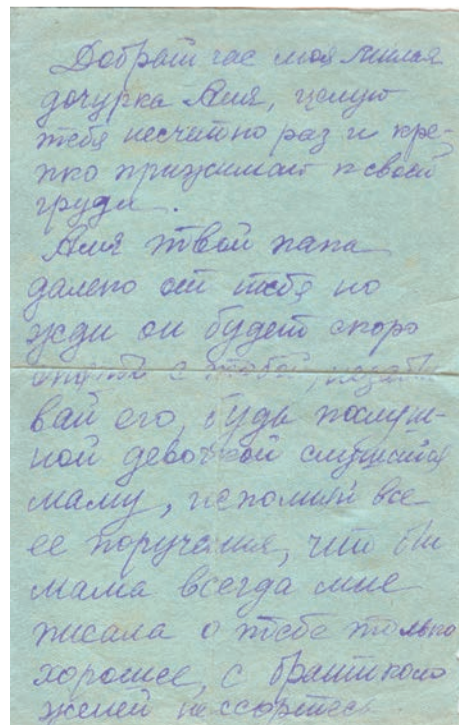 Добрый час моя милая
дочурка Аля, целую
тебя несчетно раз и кре-
пко прижимаю к своей
груди.
Аля твой папа
далеко от тебя но
жди он будет скоро
опять с тобой, незабы
вай его, будь послуш-
ной девочкой слушайся
маму, исполняй все
ее поручения, что бы
мама всегда мне
писала о тебе только
хорошее, с братиком
Женей нессорьтесь.